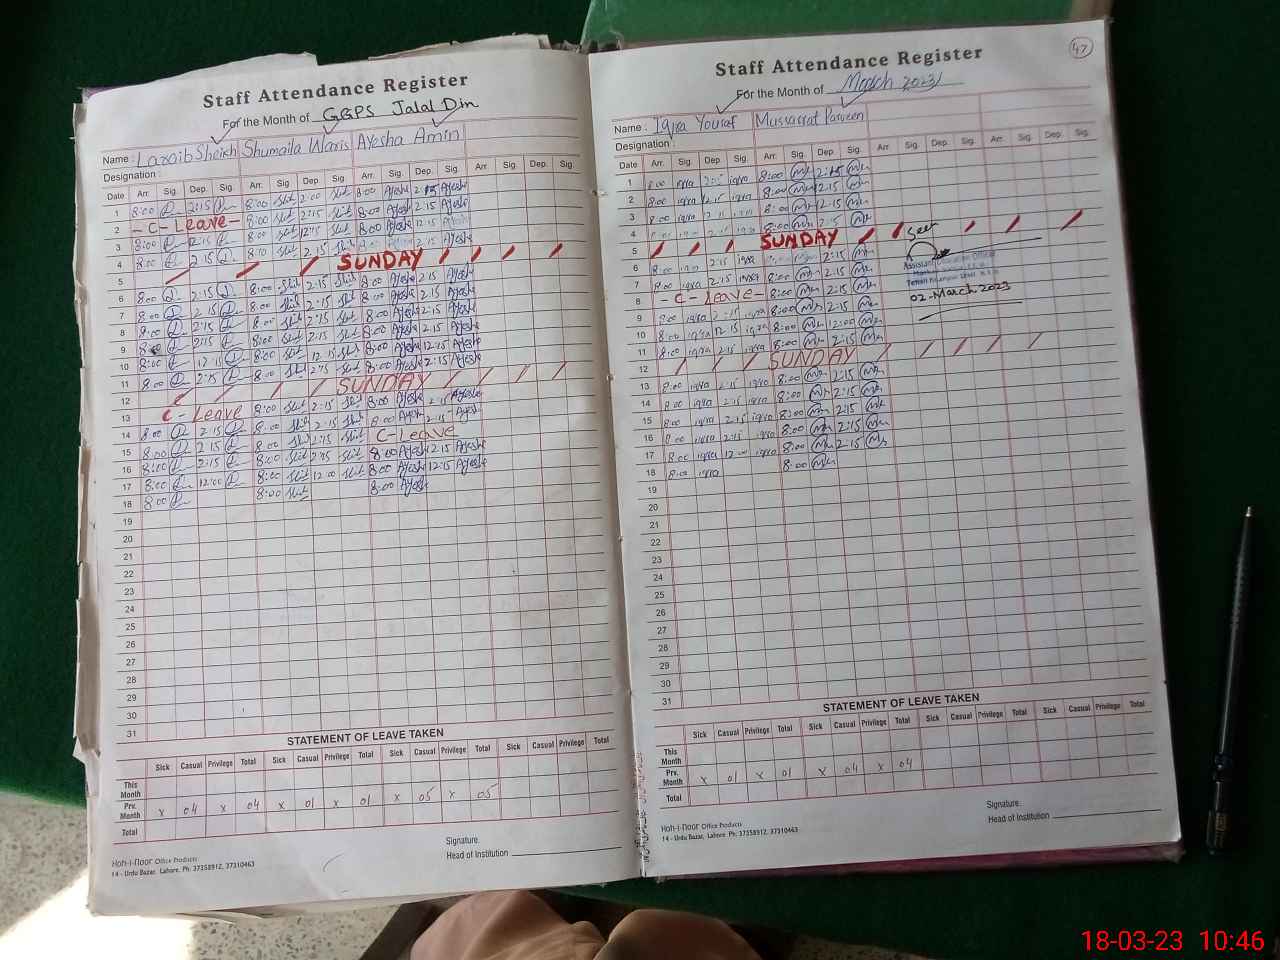 Staff Attendance Register
For the Month of GGPS Jalal Din
Name : Laraib Sheikh Shumaila Waris Ayesha Amin
Designation :
Date Arr. Sig. Dep. Sig. Arr. Sig Dep Sig. Arr. Sig. Dep. Sig. Arr. Sig. Dep. Sig.
1 8:00 2:15 8:00 2:00 8:00 Ayesha 2:15 Ayesha
2 - C - Leave - 8:00 2:15 8:00 Ayesha 2:15 Ayesha
3 8:00 12:15 8:00 12:15 8:00 Ayesha 12:15 Ayesha
4 8:00 2:15 8:10 2:15 8:00 2:15 Ayesha
5 SUNDAY
6 8:00 2:15 8:00 2:15 8:00 Ayesha 2:15 Ayesha
7 8:00 2:15 8:00 2:15 8:00 Ayesha 2:15 Ayesha
8 8:00 2:15 8:00 2:15 8:00 Ayesha 2:15 Ayesha
9 2:15 8:00 2:15 8:00 Ayesha 2:15 Ayesha
10 8:00 12:15 8:00 12:15 8:00 Ayesha 12:15 Ayesha
11 8:00 2:15 8:00 2:15 8:00 Ayesha 2:15 Ayesha
12 SUNDAY
13 C - Leave 8:00 2:15 8:00 Ayesha 2:15 Ayesha
14 8:00 2:15 8:00 2:15 8:00 Ayesha 2:15 Ayesha
15 8:00 2:15 8:00 2:15 C - Leave
16 8:00 2:15 8:00 2:15 8:00 Ayesha 2:15 Ayesha
17 8:00 12:00 8:00 12:00 8:00 Ayesha 12:15 Ayesha
18 8:00 8:00 8:00 Ayesha
19
20
21
22
23
24
25
26
27
28
29
30
31
STATEMENT OF LEAVE TAKEN
Sick Casual Privilege Total Sick Casual Privilege Total Sick Casual Privilege Total Sick Casual Privilege Total
This Month
Prv. Month x 04 x 04 x 01 x 01 x 05 x 05
Total
Signature.
Head of Institution
Hoh-i-noor Office Products
14 - Urdu Bazar, Lahore. Ph: 37358912, 37310463
47
Staff Attendance Register
For the Month of March 2023
Name : Iqra Yousaf Mussarrat Parveen
Designation :
Date Arr. Sig. Dep. Sig. Arr. Sig. Dep Sig. Arr. Sig. Dep. Sig. Arr. Sig. Dep. Sig.
1 8:00 iqra 2:15 iqra 8:00 2:15
2 8:00 iqra 2:15 iqra 8:00 2:15
3 8:00 iqra 12:15 iqra 8:00 12:15
4 8:00 iqra 2:15 iqra 8:00 2:15
5 SUNDAY
6 8:00 iqra 2:15 iqra 2:15
7 8:00 iqra 2:15 iqra 8:00 2:15
8 - C - Leave - 8:00 2:15
9 8:00 iqra 2:15 iqra 8:00 2:15
10 8:00 iqra 12:15 iqra 8:00 12:00
11 8:00 iqra 2:15 iqra 8:00 2:15
12 SUNDAY
13 8:00 iqra 2:15 iqra 8:00 2:15
14 8:00 iqra 2:15 iqra 8:00 2:15
15 8:00 iqra 2:15 iqra 8:00 2:15
16 8:00 iqra 2:15 iqra 8:00 2:15
17 8:00 iqra 12:00 iqra 8:00 2:15
18 8:00 iqra 8:00
19
20
21
22
23
24
25
26
27
28
29
30
31
Seen
Assistant Education Officer
02-March 2023
STATEMENT OF LEAVE TAKEN
Sick Casual Privilege Total Sick Casual Privilege Total Sick Casual Privilege Total Sick Casual Privilege Total
This Month
Prv. Month x 01 x 01 x 04 x 04
Total
Signature.
Head of Institution
Hoh-i-noor Office Products
14 - Urdu Bazar, Lahore Ph: 37358912, 37310463
18-03-23 10:46